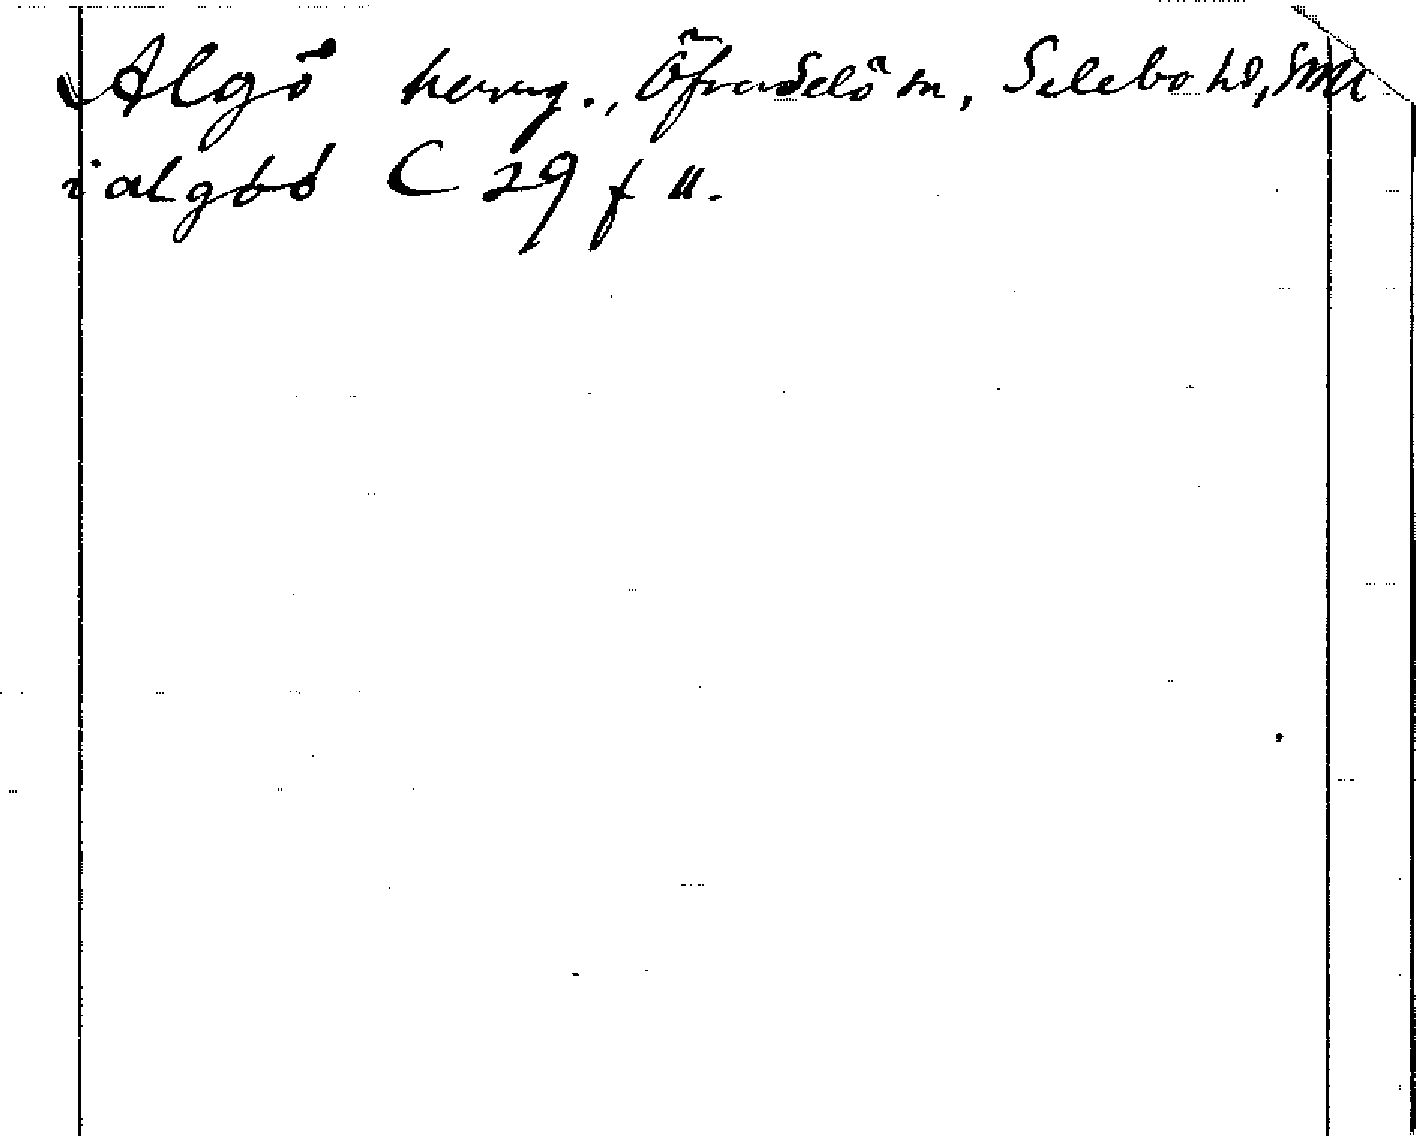 Algö herrg., Öfraselö sn, Selebo hd, Sml
i algöö C 29 f 11.